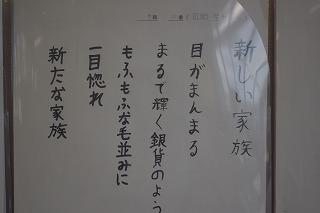 新しい家族
目がまんまる
まるで輝く銀貨のよう
もふもふな毛並みに
一目惚れ
新たな家族